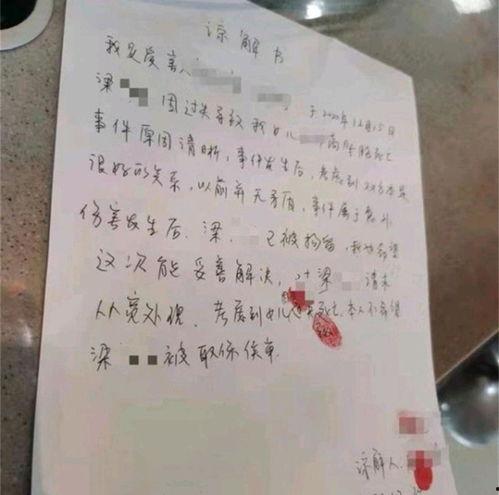 谅解书
我是受害人
梁 因过失导致我女儿 高坠身亡 于2020年12月15日
事件原因清晰，事件发生后，考虑到双方
很好的关系，以前并无矛盾，事件属于意外
伤害发生后，梁 已被拘留，我也希望
这次能妥善解决，对梁 请求
从宽处理，考虑到女儿 死亡，本人不希望
梁 被取保候审
谅解人